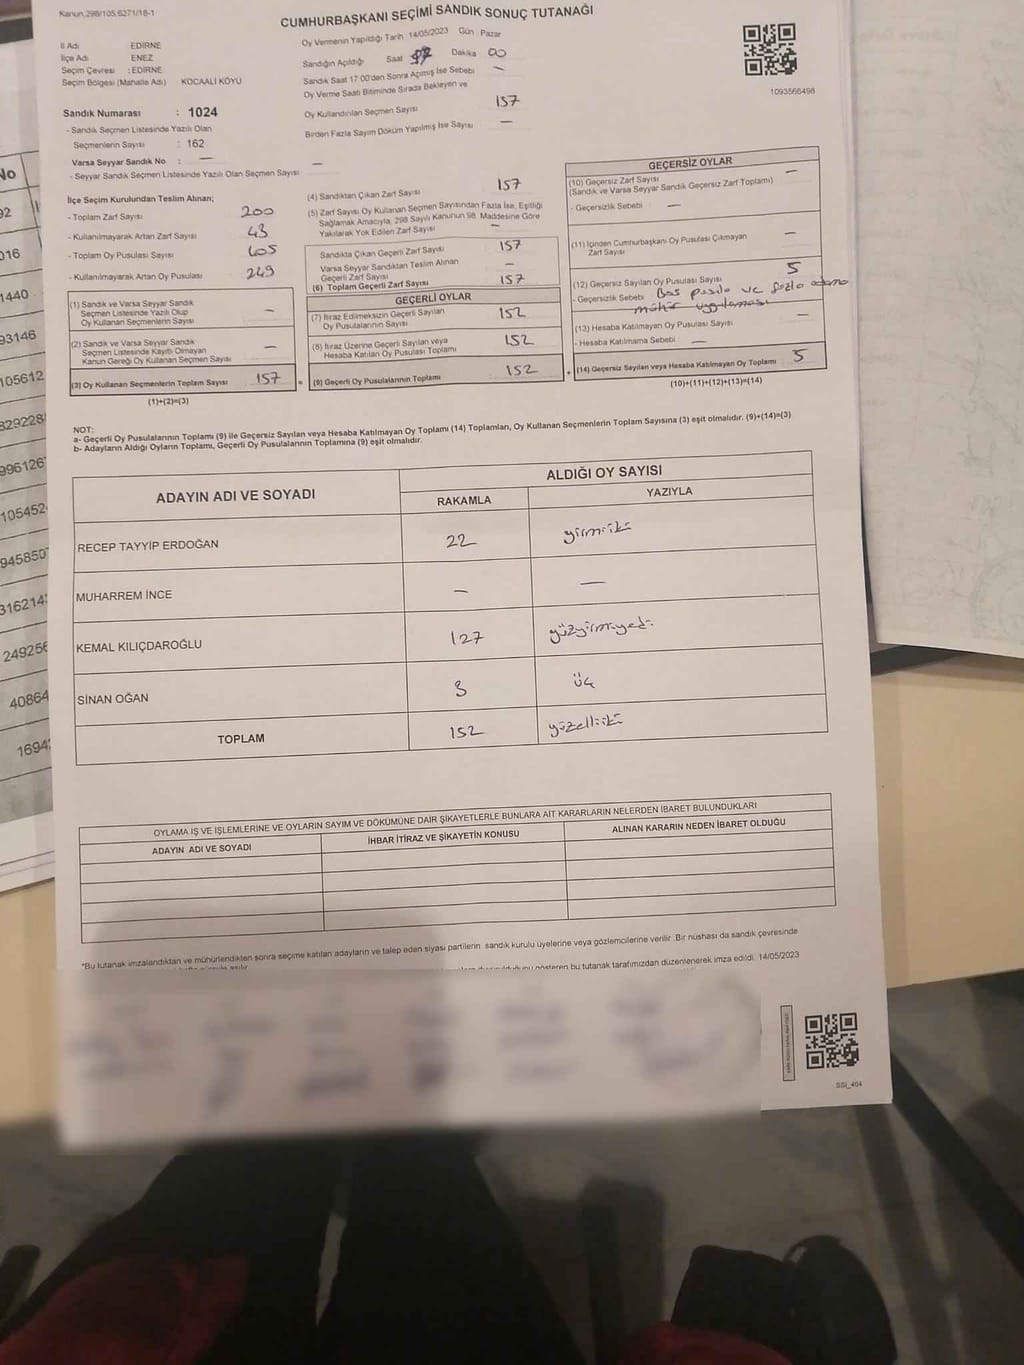 Kanun:298/105,6271/18-1
CUMHURBAŞKANI SEÇİMİ SANDIK SONUÇ TUTANAĞI
İl Adı EDİRNE
İlçe Adı ENEZ
Seçim Çevresi : EDİRNE
Seçim Bölgesi (Mahalle Adı) KOCAALİ KÖYÜ
Sandık Numarası : 1024
- Sandık Seçmen Listesinde Yazılı Olan
Seçmenlerin Sayısı : 162
Varsa Seyyar Sandık No : —
- Seyyar Sandık Seçmen Listesinde Yazılı Olan Seçmen Sayısı —
Oy Vermenin Yapıldığı Tarih 14/05/2023 Gün Pazar
Sandığın Açıldığı Saat Dakika 00
Sandık Saat 17:00'den Sonra Açımış İse Sebebi —
Oy Verme Saati Bitiminde Sırada Bekleyen ve
Oy Kullandırılan Seçmen Sayısı 157
Birden Fazla Sayım Döküm Yapılmış İse Sayısı —
1093566498
İlçe Seçim Kurulundan Teslim Alınan;
- Toplam Zarf Sayısı 200
- Kullanılmayarak Artan Zarf Sayısı 43
- Toplam Oy Pusulası Sayısı 405
- Kullanılmayarak Artan Oy Pusulası 249
(1) Sandık ve Varsa Seyyar Sandık
Seçmen Listesinde Yazılı Olup
Oy Kullanan Seçmenlerin Sayısı —
(2) Sandık ve Varsa Seyyar Sandık
Seçmen Listesinde Kayıtlı Olmayan
Kanun Gereği Oy Kullanan Seçmen Sayısı —
(3) Oy Kullanan Seçmenlerin Toplam Sayısı 157
(1)+(2)=(3)
(4) Sandıktan Çıkan Zarf Sayısı 157
(5) Zarf Sayısı Oy Kullanan Seçmen Sayısından Fazla İse, Eşitliği
Sağlamak Amacıyla, 298 Sayılı Kanunun 98. Maddesine Göre
Yakılarak Yok Edilen Zarf Sayısı —
Sandıkta Çıkan Geçerli Zarf Sayısı 157
Varsa Seyyar Sandıktan Teslim Alınan
Geçerli Zarf Sayısı —
(6) Toplam Geçerli Zarf Sayısı 157
GEÇERLİ OYLAR
(7) İtiraz Edilmeksizin Geçerli Sayılan
Oy Pusulalarının Sayısı 152
(8) İtiraz Üzerine Geçerli Sayılan veya
Hesaba Katılan Oy Pusulası Toplamı 152
= (9) Geçerli Oy Pusulalarının Toplamı 152
GEÇERSİZ OYLAR
(10) Geçersiz Zarf Sayısı —
(Sandık ve Varsa Seyyar Sandık Geçersiz Zarf Toplamı)
- Geçersizlik Sebebi —
(11) İçinden Cumhurbaşkanı Oy Pusulası Çıkmayan
Zarf Sayısı —
(12) Geçersiz Sayılan Oy Pusulası Sayısı 5
- Geçersizlik Sebebi Boş pusula ve fazla adama
mühür uygulaması
(13) Hesaba Katılmayan Oy Pusulası Sayısı —
- Hesaba Katılmama Sebebi —
+ (14) Geçersiz Sayılan veya Hesaba Katılmayan Oy Toplamı 5
(10)+(11)+(12)+(13)=(14)
NOT:
a- Geçerli Oy Pusulalarının Toplamı (9) ile Geçersiz Sayılan veya Hesaba Katılmayan Oy Toplamı (14) Toplamları, Oy Kullanan Seçmenlerin Toplam Sayısına (3) eşit olmalıdır. (9)+(14)=(3)
b- Adayların Aldığı Oyların Toplamı, Geçerli Oy Pusulalarının Toplamına (9) eşit olmalıdır.
ADAYIN ADI VE SOYADI ALDIĞI OY SAYISI
RAKAMLA YAZIYLA
RECEP TAYYİP ERDOĞAN 22 yirmiiki
MUHARREM İNCE — —
KEMAL KILIÇDAROĞLU 127 yüzyirmiyedi
SİNAN OĞAN 3 üç
TOPLAM 152 yüzelliiki
OYLAMA İŞ VE İŞLEMLERİNE VE OYLARIN SAYIM VE DÖKÜMÜNE DAİR ŞİKAYETLERLE BUNLARA AİT KARARLARIN NELERDEN İBARET BULUNDUKLARI
ADAYIN ADI VE SOYADI İHBAR İTİRAZ VE ŞİKAYETİN KONUSU ALINAN KARARIN NEDEN İBARET OLDUĞU
*Bu tutanak imzalandıktan ve mühürlendikten sonra seçime katılan adayların ve talep eden siyasi partilerin sandık kurulu üyelerine veya gözlemcilerine verilir. Bir nüshası da sandık çevresinde
gösteren bu tutanak tarafımızdan düzenlenerek imza edildi. 14/05/2023
SSI_404
No
92
016
1440
93146
105612
829228
996126
105452
945850
316214
249256
40864
1694